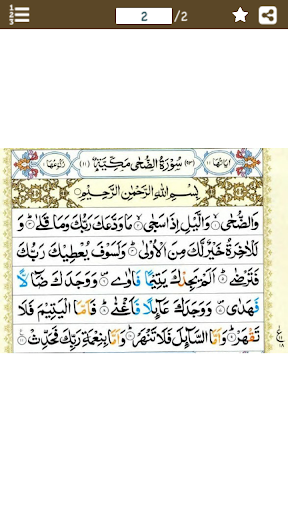 2 /2
اٰيَاتُهَا ١١ (٩٣) سُوْرَةُ الضُّحٰى مَكِّيَّةٌ (١١) رُكُوْعُهَا ١
بِسْمِ اللّٰهِ الرَّحْمٰنِ الرَّحِيْمِ
وَالضُّحٰى ۙ وَالَّيْلِ اِذَا سَجٰى ۙ مَا وَدَّعَكَ رَبُّكَ وَمَا قَلٰى ۙ وَ
لَلْاٰخِرَةُ خَيْرٌ لَّكَ مِنَ الْاُوْلٰى ۙ وَلَسَوْفَ يُعْطِيْكَ رَبُّكَ
فَتَرْضٰى ۙ اَلَمْ يَجِدْكَ يَتِيْمًا فَاٰوٰى ۪ وَوَجَدَكَ ضَآلًّا
فَهَدٰى ۪ وَوَجَدَكَ عَآئِلًا فَاَغْنٰى ۙ فَاَمَّا الْيَتِيْمَ فَلَا
تَقْهَرْ ۙ وَاَمَّا السَّآئِلَ فَلَا تَنْهَرْ ۙ وَاَمَّا بِنِعْمَةِ رَبِّكَ فَحَدِّثْ